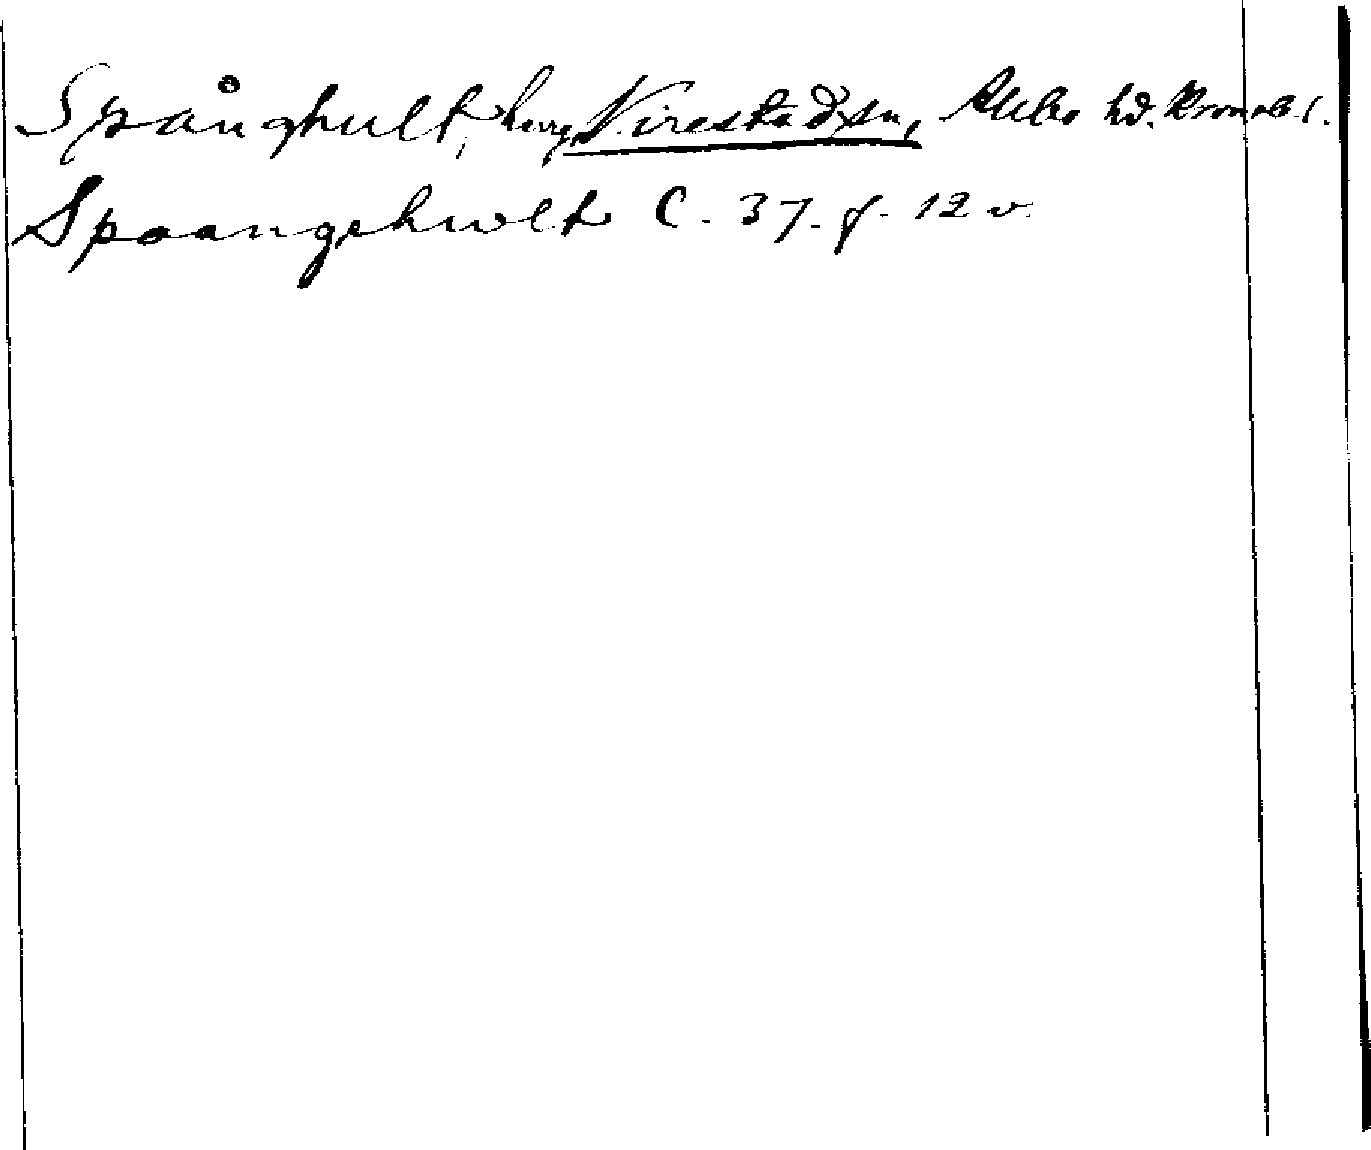 Spånghult, herg, Virestads sn, Allbo hd. Kronob. l.
Spaangehwlt C. 37. f. 12 v.